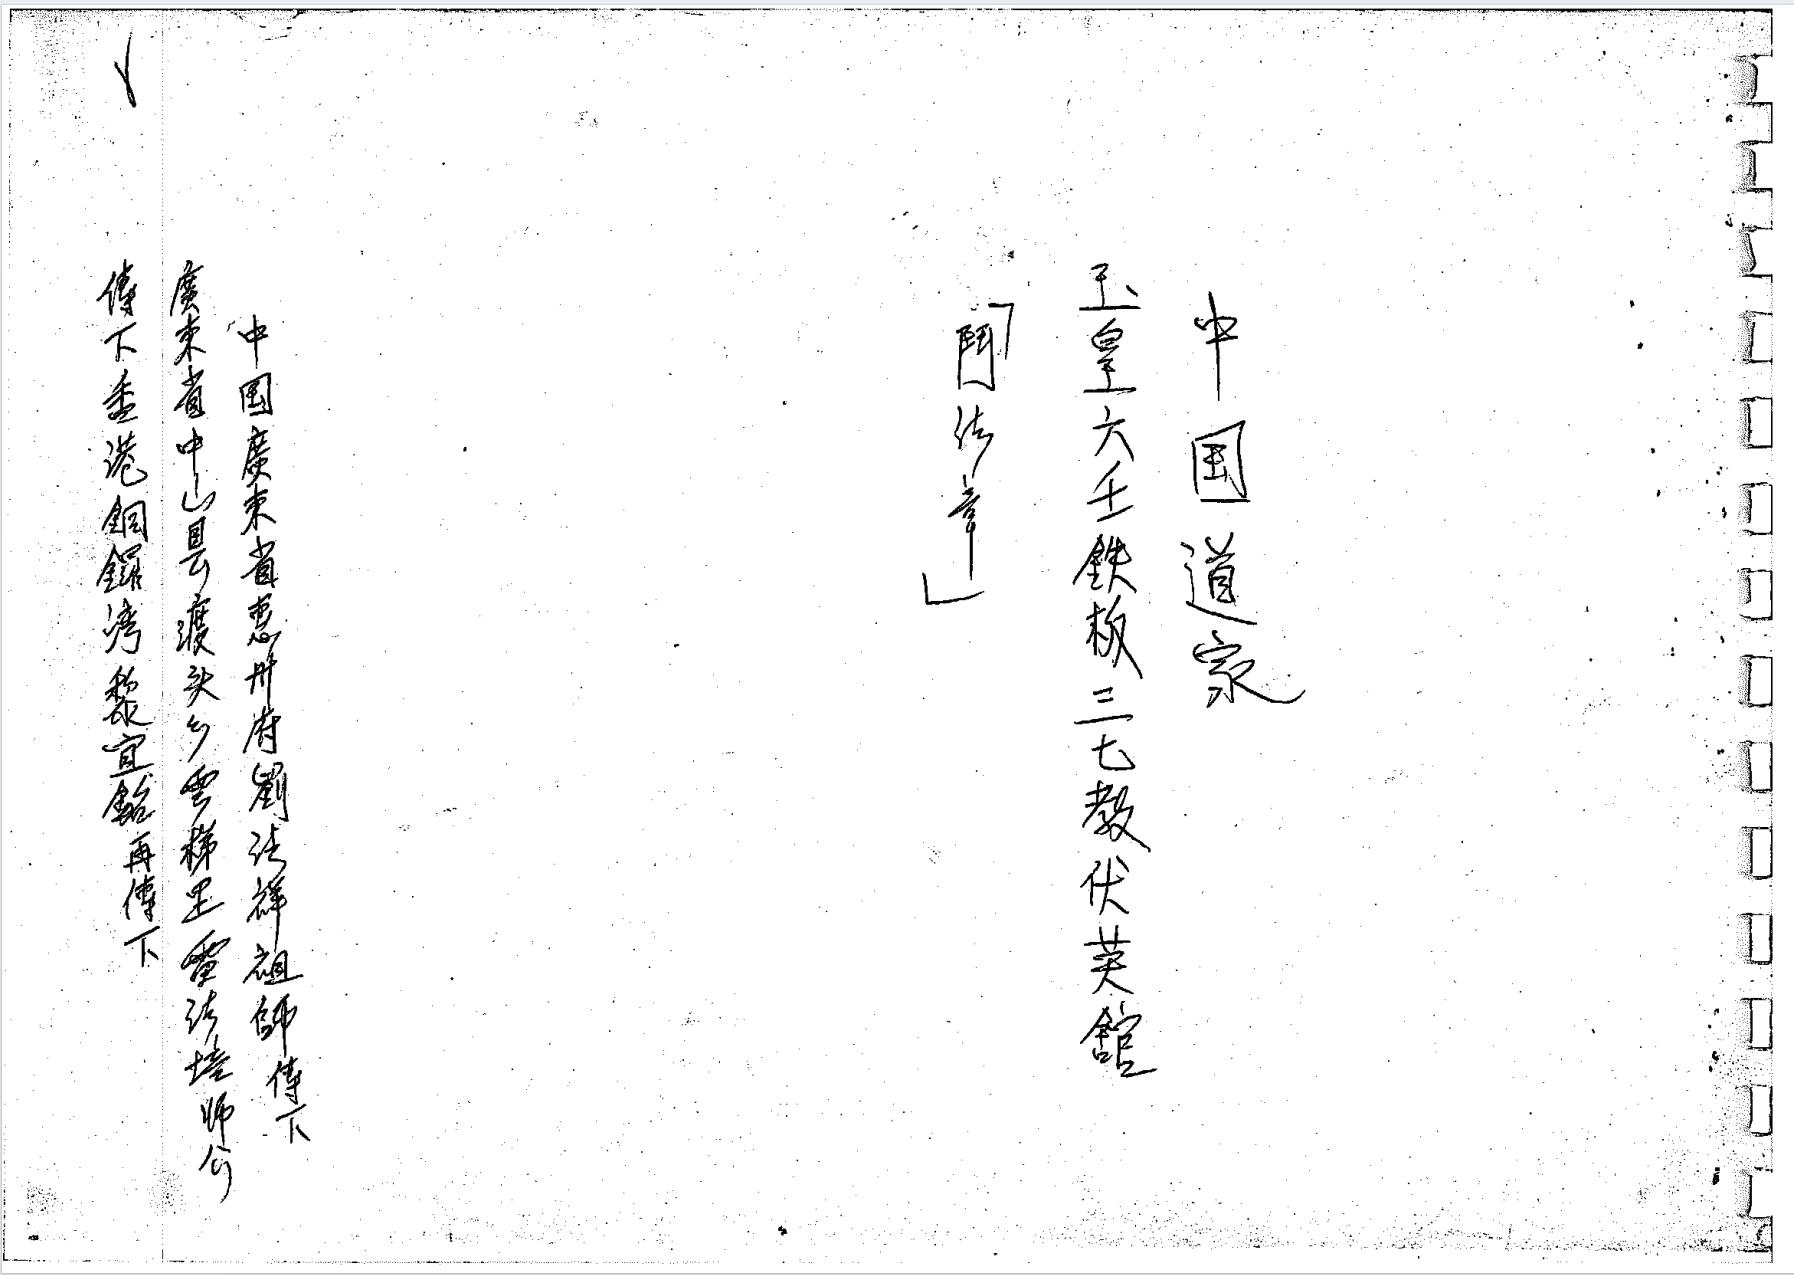 中国道家
玉皇六壬鉄板三七教伏英舘
「鬥法章」
中国廣東省惠州府劉法祥祖師傳下
廣東省中山县渡头乡雲梯里雷法培师公
傳下香港銅鑼湾黎宜銘再傳下